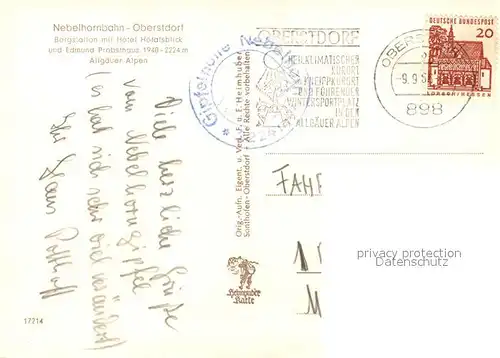 Nebelhornbahn - Oberstdorf
Bergstation mit Hotel Höfatsblick
und Edmund Probsthaus 1948-2224 m
Allgäuer Alpen
Viele herzliche Grüße
vom Nebelhorngipfel
(es hat sich sehr viel verändert)
Ihr Hans
17214
Orig.-Aufn. Eigent. u. Verl. F. u. E. Heimhuber
Sonthofen-Oberstdorf * Alle Rechte vorbehalten
Heimhuber
Karte
Gipfelhütte Nebelhorn
OBERSTDORF
HEILKLIMATISCHER
KURORT
KNEIPPKURORT
UND FÜHRENDER
WINTERSPORTPLATZ
IN DEN
ALLGÄUER ALPEN
OBERSTDORF
-9.9.6
898
DEUTSCHE BUNDESPOST
20
LORSCH/HESSEN
FAHR
1
M
privacy protection
Datenschutz